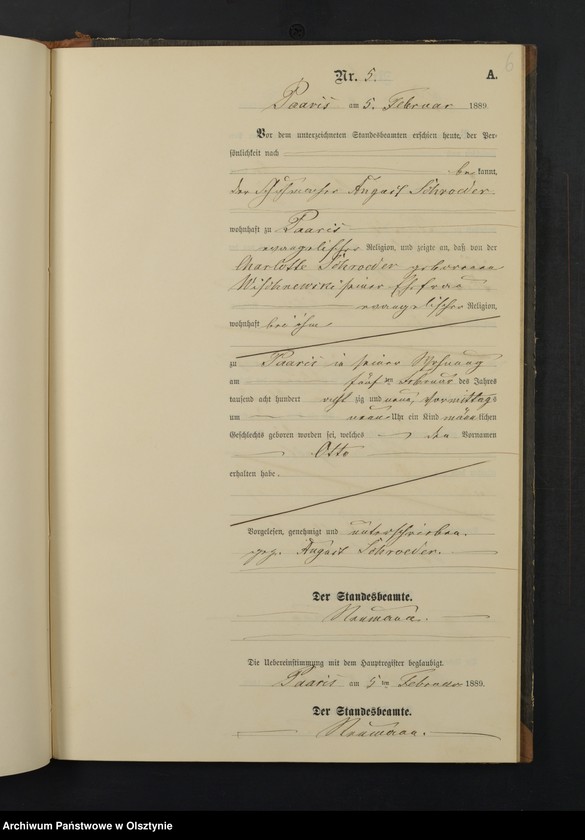 6
Nr. 5. A.
Paaris am 5. Februar 1889.
Vor dem unterzeichneten Standesbeamten erschien heute, der Per-
sönlichkeit nach
bekannt,
der August Schroeder
wohnhaft zu Paaris
evangelischer Religion, und zeigte an, daß von der
Charlotte Schroeder geborenen
Wischnewski seiner Ehefrau
evangelischer Religion,
wohnhaft bei ihm
zu Paaris in seiner Wohnung
am fünften Februar des Jahres
tausend acht hundert achtzig und neun, Vormittags
um neun Uhr ein Kind männlichen
Geschlechts geboren worden sei, welches den Vornamen
Otto
erhalten habe.
Vorgelesen, genehmigt und unterschrieben.
gez. August Schroeder.
Der Standesbeamte.
Neumann.
Die Uebereinstimmung mit dem Hauptregister beglaubigt.
Paaris am 5ten Februar 1889.
Der Standesbeamte.
Neumann.
Archiwum Państwowe w Olsztynie